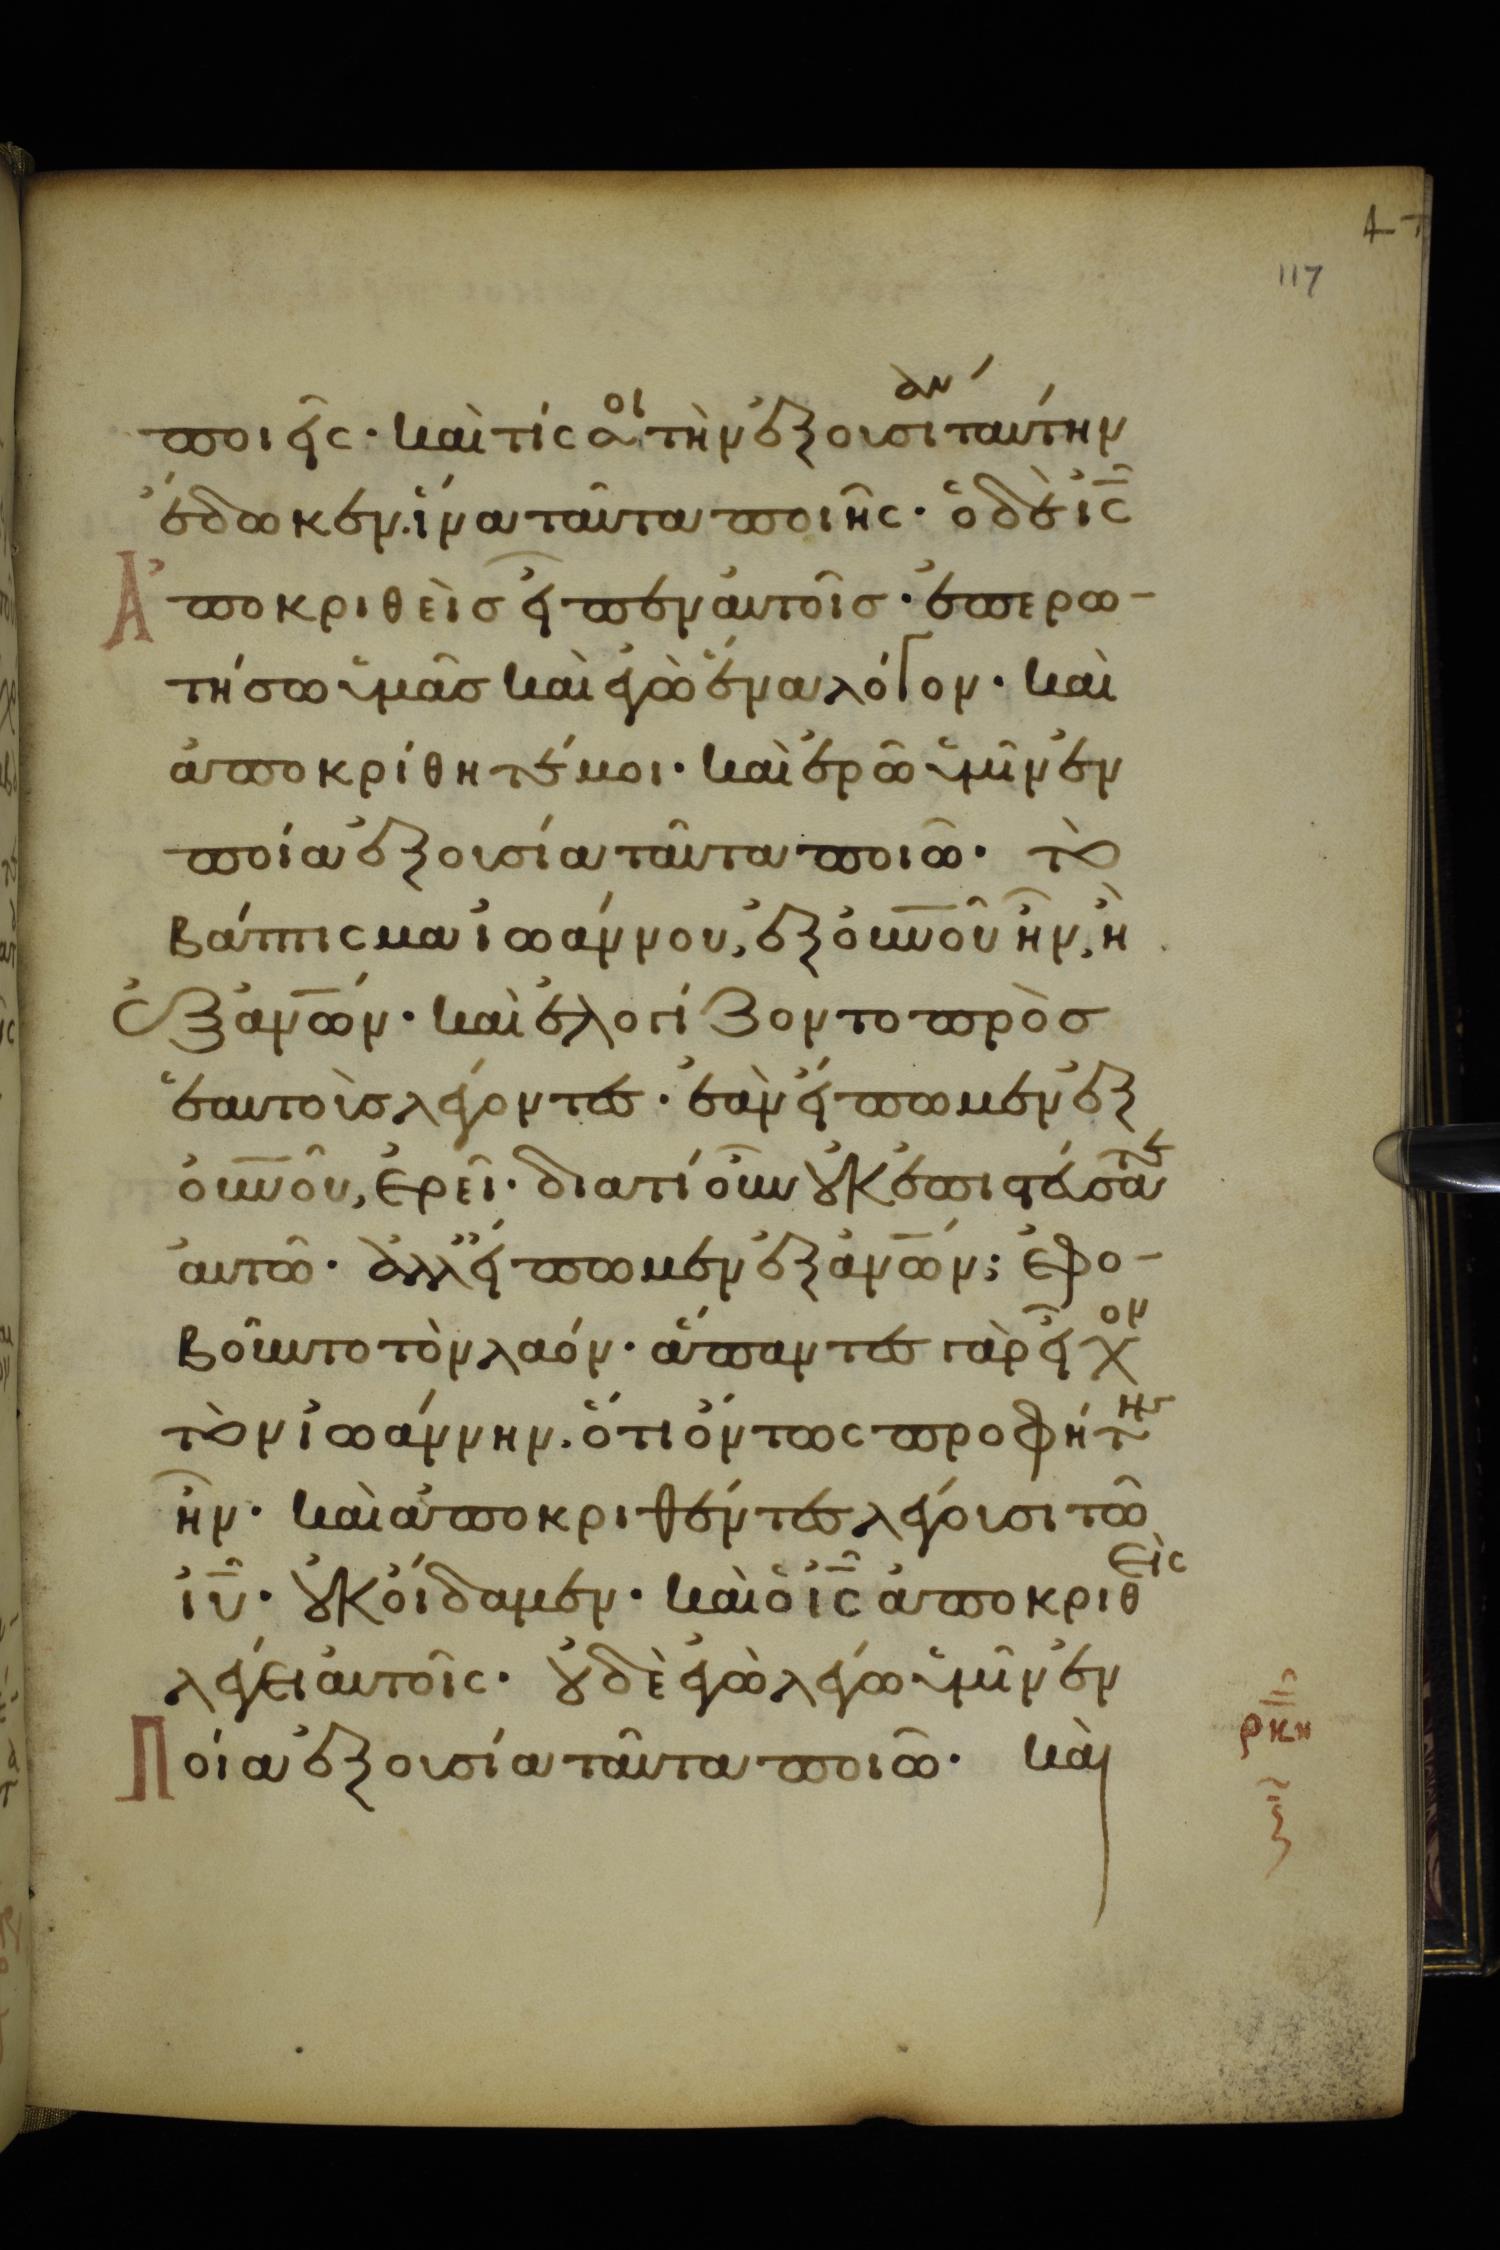 117
ποιεῖς· καὶ τίς σοι τὴν ἐξουσίαν ταύτην
ἔδωκεν. ἵνα ταῦτα ποιῆς· ὁ δὲ ἰ̅ς̅
Ἀποκριθεὶσ εἶπεν ἀυτοῖσ· ἐπερω-
τήσω ὑμᾶσ καὶ ἐγὼ ἕνα λόγον· καὶ
ἀποκρίθητέ μοι· καὶ ἐρῶ ὑμῖν ἐν
ποία ἐξουσία ταῦτα ποιῶ· τὸ
Βάπτισμα ἰωάννου, ἐξ ὀυ̅ν̅οῦ ἦν, ἢ
ἐξ ἀν̅ω̅ν· καὶ ἐλογίζοντο πρὸσ
ἑαυτοὺσ λέγοντες· ἐὰν εἴπωμεν ἐξ
ὀυ̅ν̅οῦ, ἐρεῖ· διατί οὖν ὀυκ ἐπιστεύσατε
ἀυτῶ· ἀλλ' εἴπωμεν ἐξ ἀν̅ω̅ν; ἐφο-
Βοῦντο τὸν λαόν· ἅπαντες γὰρ εἶχον
τὸν ἰωάννην. ὅτι ὄντως προφήτης
ἦν· καὶ ἀποκριθέντες λέγουσι τῶ
ἰ̅υ̅· ὀυκ ὀίδαμεν· καὶ ὁ ἰ̅ς̅ ἀποκριθεὶς
λέγει ἀυτοῖς· ὀυδὲ ἐγὼ λέγω ὑμῖν ἐν
Ποία ἐξουσία ταῦτα ποιῶ· καὶ
ρκη